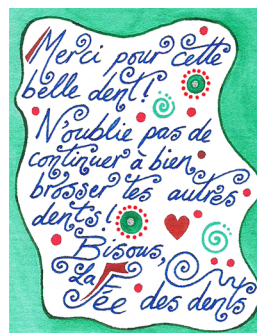 Merci pour cette
belle dent!
N'oublie pas de
continuer à bien
brosser tes autres
dents!
Bisous,
La
Fée des dents